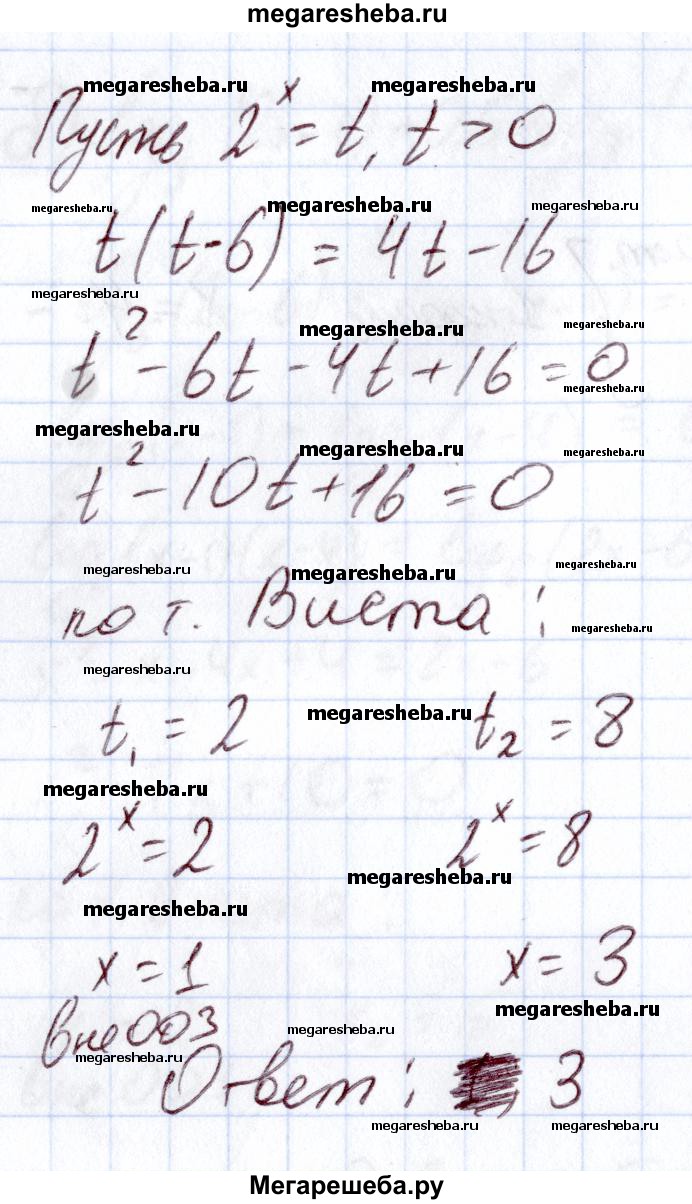 megaresheba.ru
megaresheba.ru megaresheba.ru
Пусть 2^x = t, t > 0
megaresheba.ru megaresheba.ru megaresheba.ru
t(t-6) = 4t-16
megaresheba.ru
megaresheba.ru megaresheba.ru
t² - 6t - 4t + 16 = 0
megaresheba.ru
megaresheba.ru
megaresheba.ru megaresheba.ru
t² - 10t + 16 = 0
megaresheba.ru megaresheba.ru megaresheba.ru
по т. Виета :
megaresheba.ru
megaresheba.ru
megaresheba.ru
t₁ = 2 t₂ = 8
megaresheba.ru
2^x = 2 2^x = 8
megaresheba.ru
megaresheba.ru
x = 1 x = 3
megaresheba.ru
вне ОДЗ
megaresheba.ru
megaresheba.ru
Ответ : 3
megaresheba.ru megaresheba.ru
Мегарешеба.ру